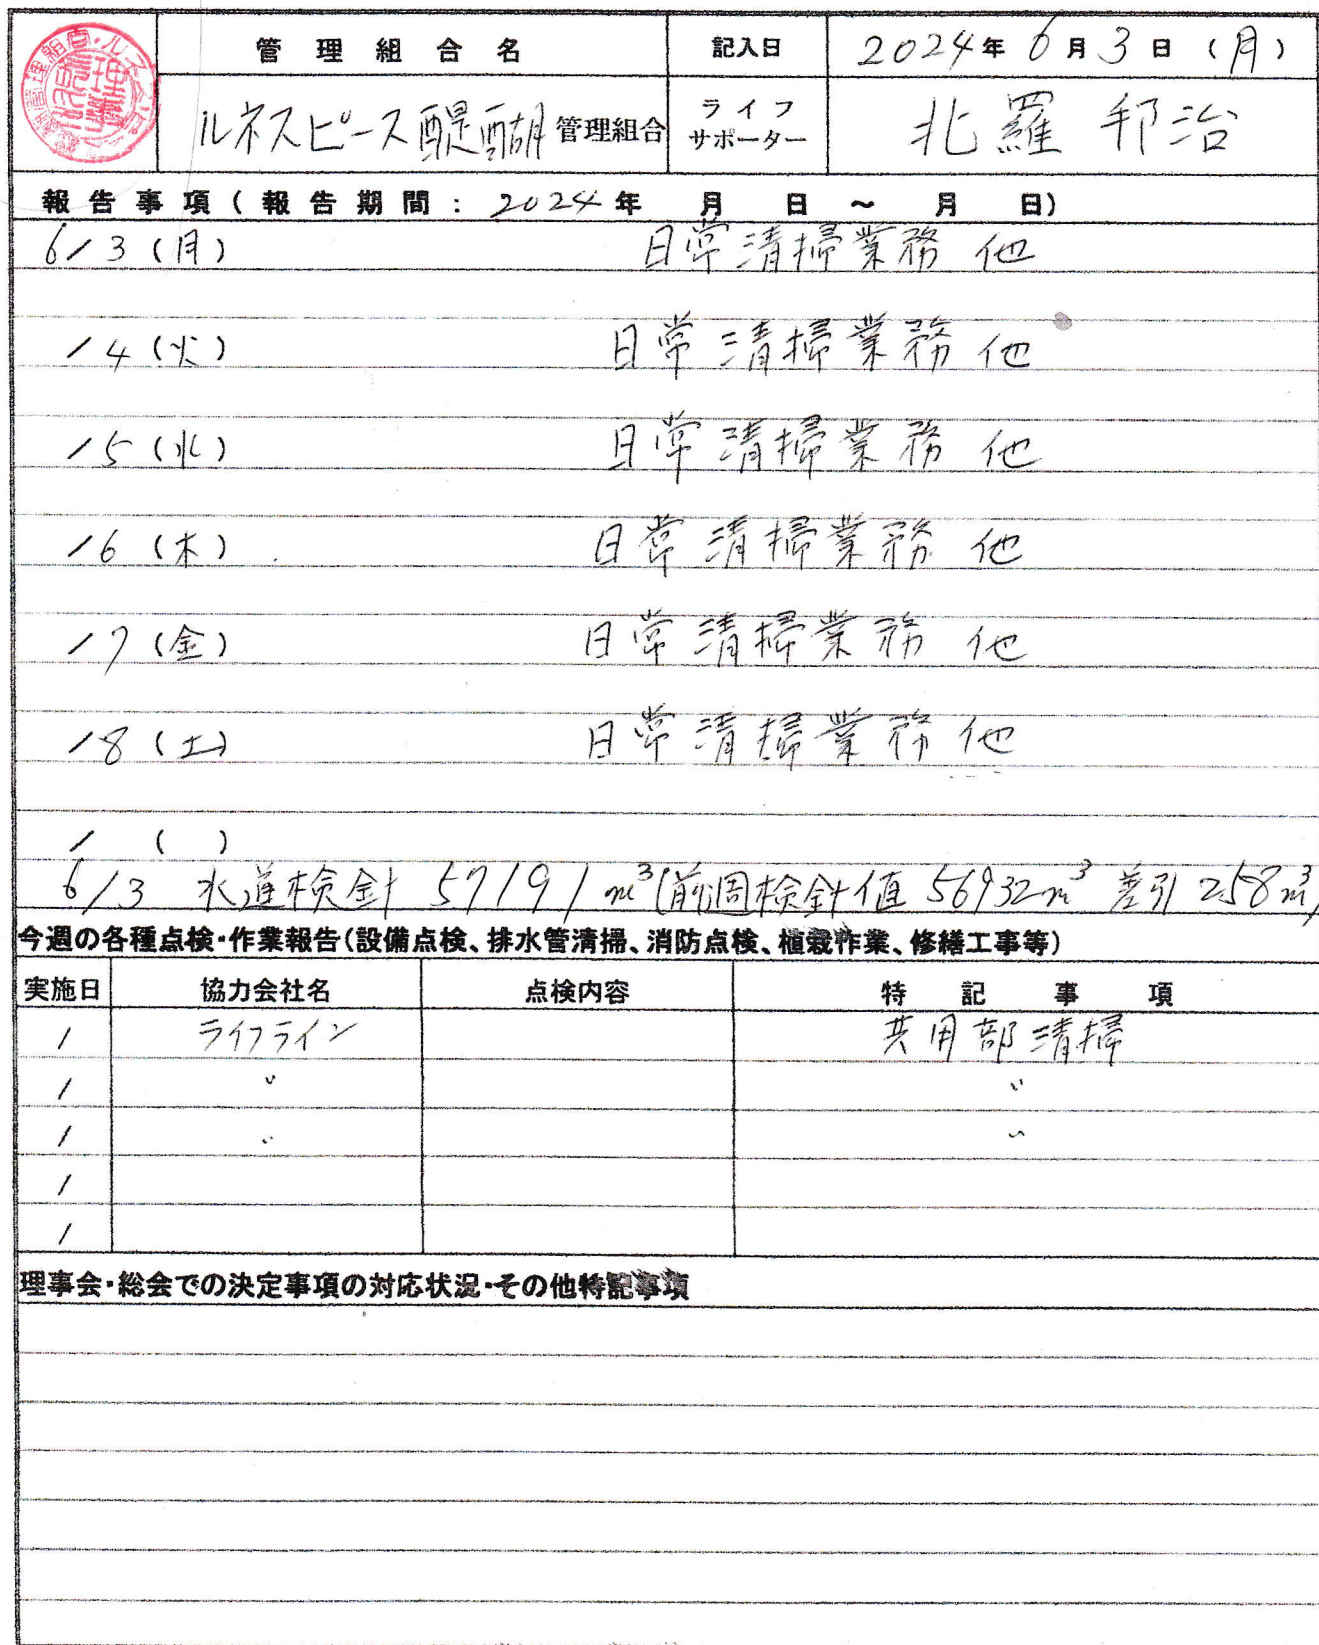 管理組合名 記入日 2024年 6月 3日 (月)
ルネスピース醍醐 管理組合 ライフサポーター 北羅 邦治
報告事項(報告期間: 2024年 月 日 ~ 月 日)
6/3(月) 日常清掃業務 他
/4(火) 日常清掃業務 他
/5(水) 日常清掃業務 他
/6(木) 日常清掃業務 他
/7(金) 日常清掃業務 他
/8(土) 日常清掃業務 他
/ ( )
6/3 水道検針 57191m³(前週検針値 56932m³ 差引 258m³)
今週の各種点検・作業報告(設備点検、排水管清掃、消防点検、植栽作業、修繕工事等)
実施日 協力会社名 点検内容 特記事項
/ ライフライン 共用部清掃
/ 〃 〃
/ 〃 〃
/
/
理事会・総会での決定事項の対応状況・その他特記事項